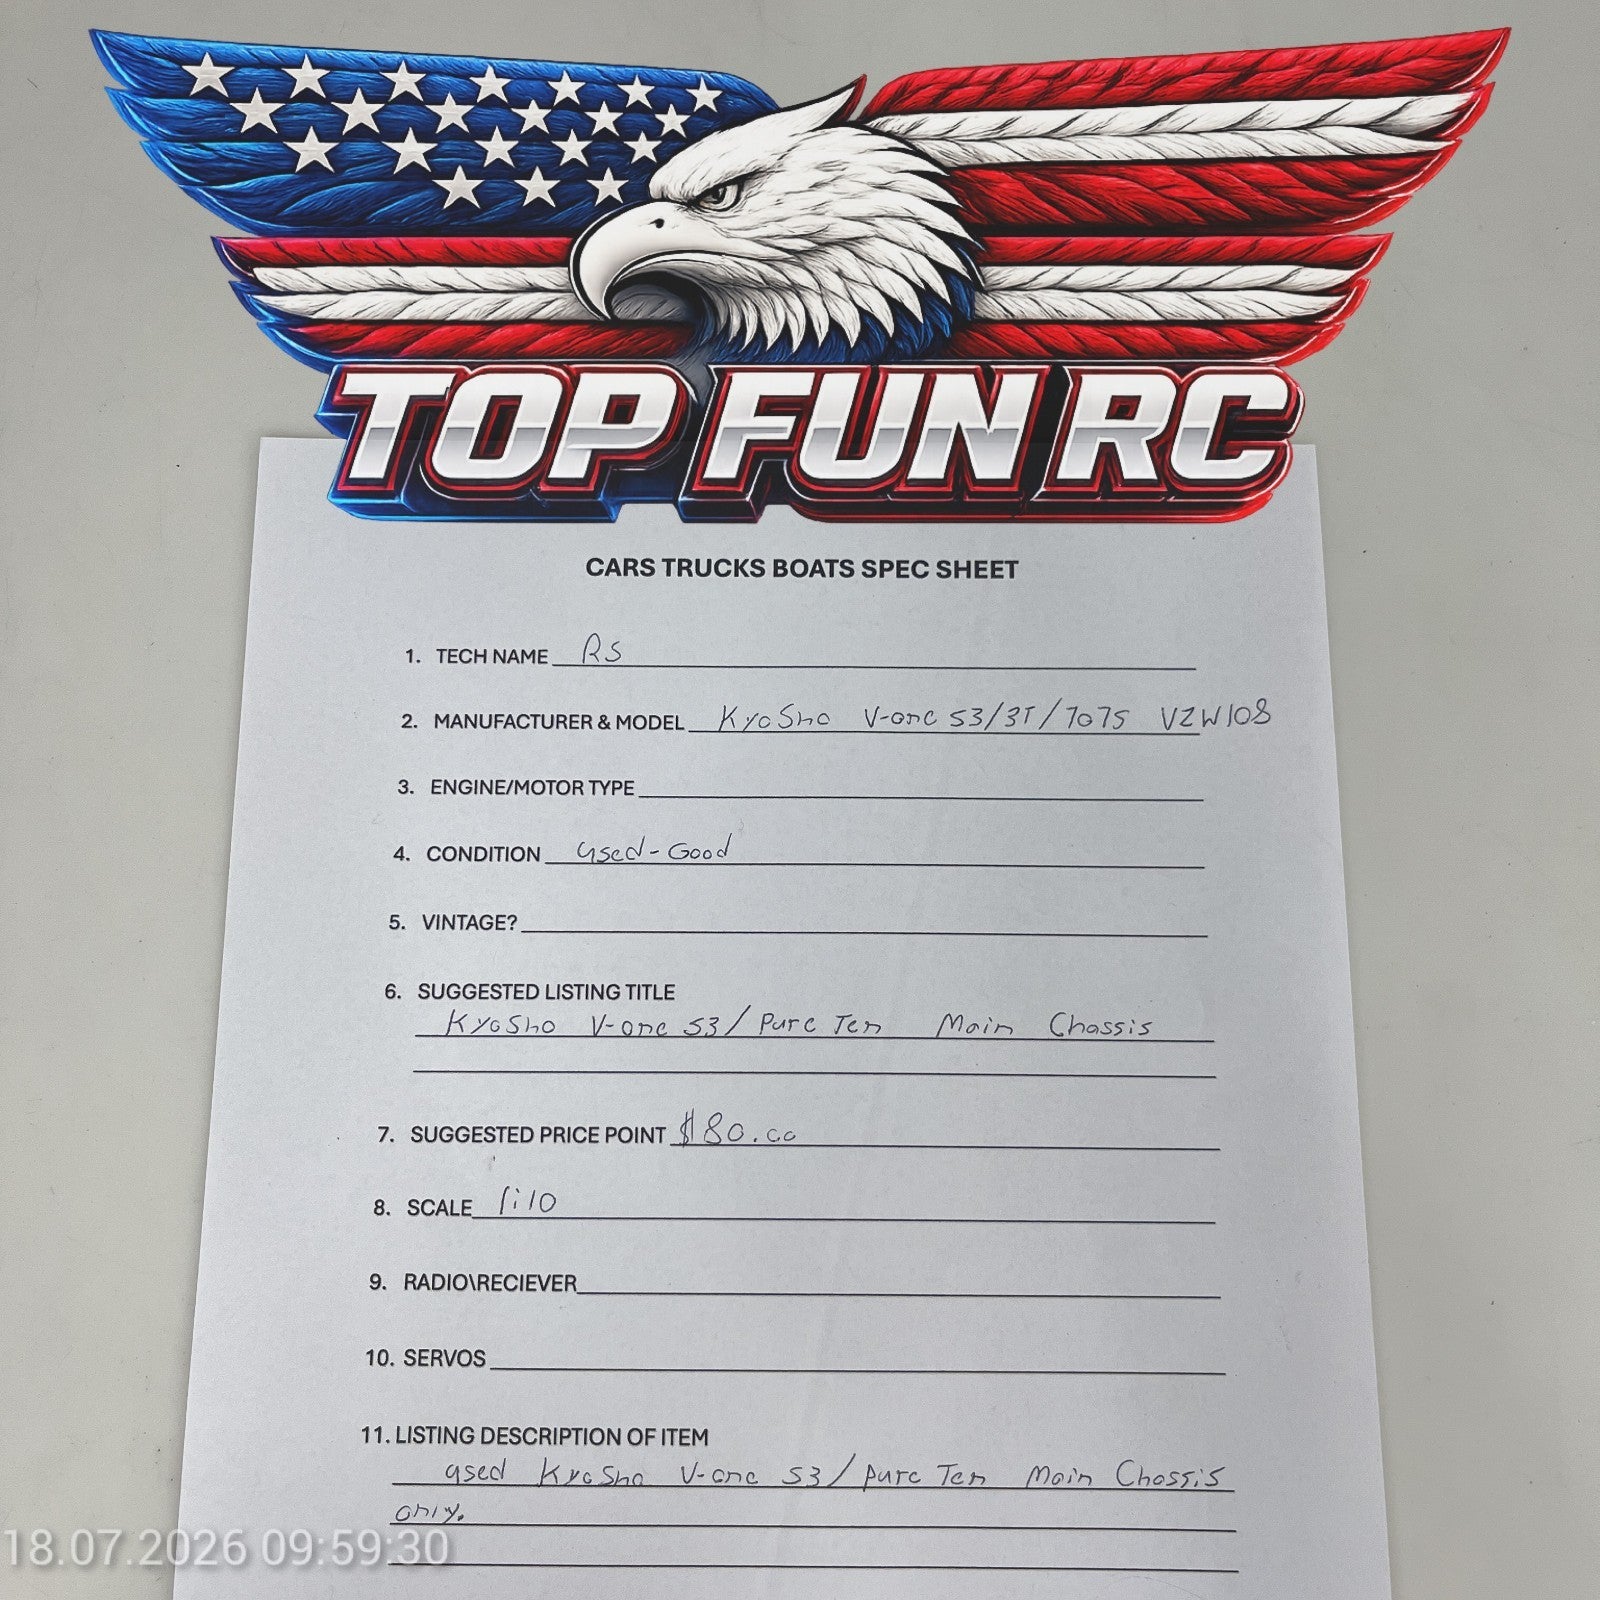 TOP FUN RC
CARS TRUCKS BOATS SPEC SHEET
1. TECH NAME RS
2. MANUFACTURER & MODEL Kyosho V-one S3/3T/7075 VZW108
3. ENGINE/MOTOR TYPE
4. CONDITION used-Good
5. VINTAGE?
6. SUGGESTED LISTING TITLE
Kyosho V-one S3/ Pure Ten Main Chassis
7. SUGGESTED PRICE POINT $80.00
8. SCALE 1:10
9. RADIO\RECIEVER
10. SERVOS
11. LISTING DESCRIPTION OF ITEM
used Kyosho V-one S3/ Pure Ten Main Chassis
only.
18.07.2026 09:59:30